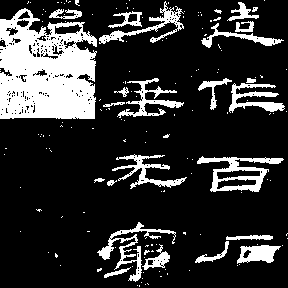 造作百石
功垂无窮
始